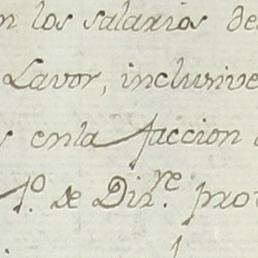 n los salarios de
Lavor, inclusive
s enla faccion
1º. de Dizre. pro